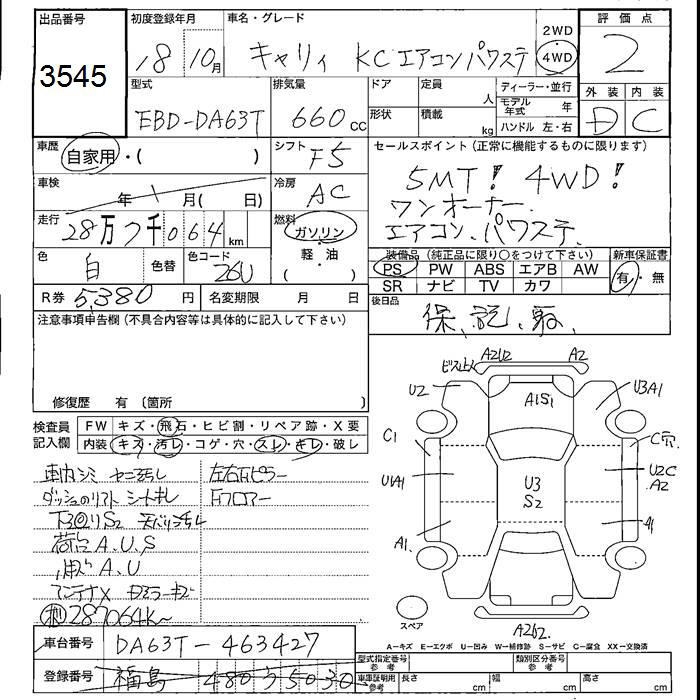 出品番号
3545
初度登録年月
18 10月
車名・グレード
キャリィ KCエアコンパワステ
2WD
4WD
評価点
2
型式
EBD-DA63T
排気量
660cc
ドア
形状
定員
人
積載
kg
ディーラー・並行
モデル年式 年
ハンドル 左・右
外装 内装
D C
車歴
自家用・( )
シフト
F5
セールスポイント(正常に機能するものに限ります)
5MT! 4WD!
ワンオーナー
エアコン、パワステ、
車検
年 月( 日)
冷房
AC
走行
28万7千064km
燃料
ガソリン
軽・油
( )
色
白
色替
色コード
26U
装備品(純正品に限り○をつけて下さい)
PS PW ABS エアB AW
SR ナビ TV カワ
新車保証書
有・無
R券 5,380円
名変期限 月 日
後日品
保、記、取、
注意事項申告欄(不具合内容等は具体的に記入して下さい)
修復歴 有〔箇所 〕
検査員記入欄
FW キズ・飛石・ヒビ割・リペア跡・X要
内装 キズ・汚レ・コゲ・穴・スレ・キレ・破レ
車内シミ
左右Fピラー
Fフロアー
荷台A.U.S
A.U
アンテナX
287064K~
車台番号 DA63T-463427
登録番号 福島 480
A2U2 A2
U2
U3A1
A1S1
C1
C穴
UA1
U3
S2
U2C
A2
A1
A1
スペア
A2
A=キズ E=エクボ U=凹み W=補修跡 S=サビ C=腐食 XX=交換済
型式指定番号参考
類別区分番号参考
車庫証明用参考 長さ cm 幅 cm 高さ cm